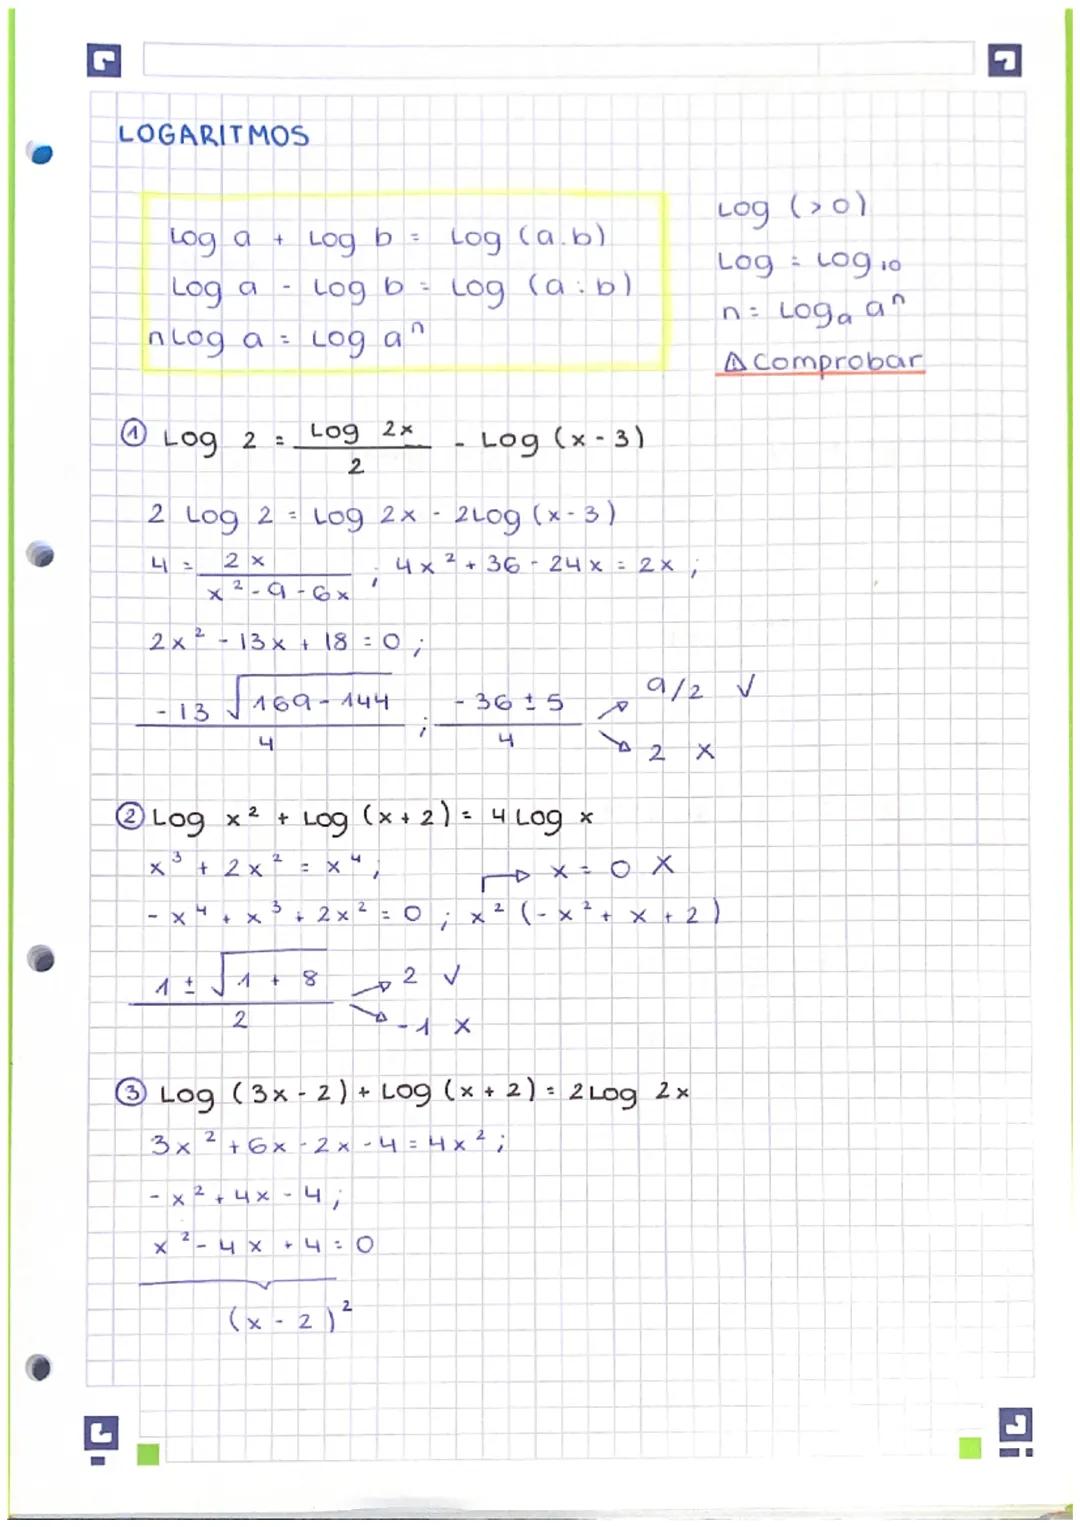 LOGARITMOS
Log a + Log b = Log (a.b)
Log a - Log b = Log (a:b)
nLog a = Log aⁿ
Log (>0)
Log = Log₁₀
n = Logₐ aⁿ
⚠ Comprobar
① Log 2 = Log 2x / 2 - Log (x-3)
2 Log 2 = Log 2x - 2Log (x-3)
4 = 2x / x² - 9 - 6x ; 4x² + 36 - 24x = 2x ;
2x² - 13x + 18 = 0 ;
-13 √169-144 / 4 ; -36 ± 5 / 4 → 9/2 ✓
→ 2 X
② Log x² + Log (x+2) = 4 Log x
x³ + 2x² = x⁴ ; → x = 0 X
-x⁴ + x³ + 2x² = 0 ; x² (-x² + x + 2)
1 ± √1 + 8 / 2 → 2 ✓
→ -1 X
③ Log (3x-2) + Log (x+2) = 2Log 2x
3x² + 6x - 2x - 4 = 4x² ;
-x² + 4x - 4 ;
x² - 4x + 4 = 0
(x - 2)²